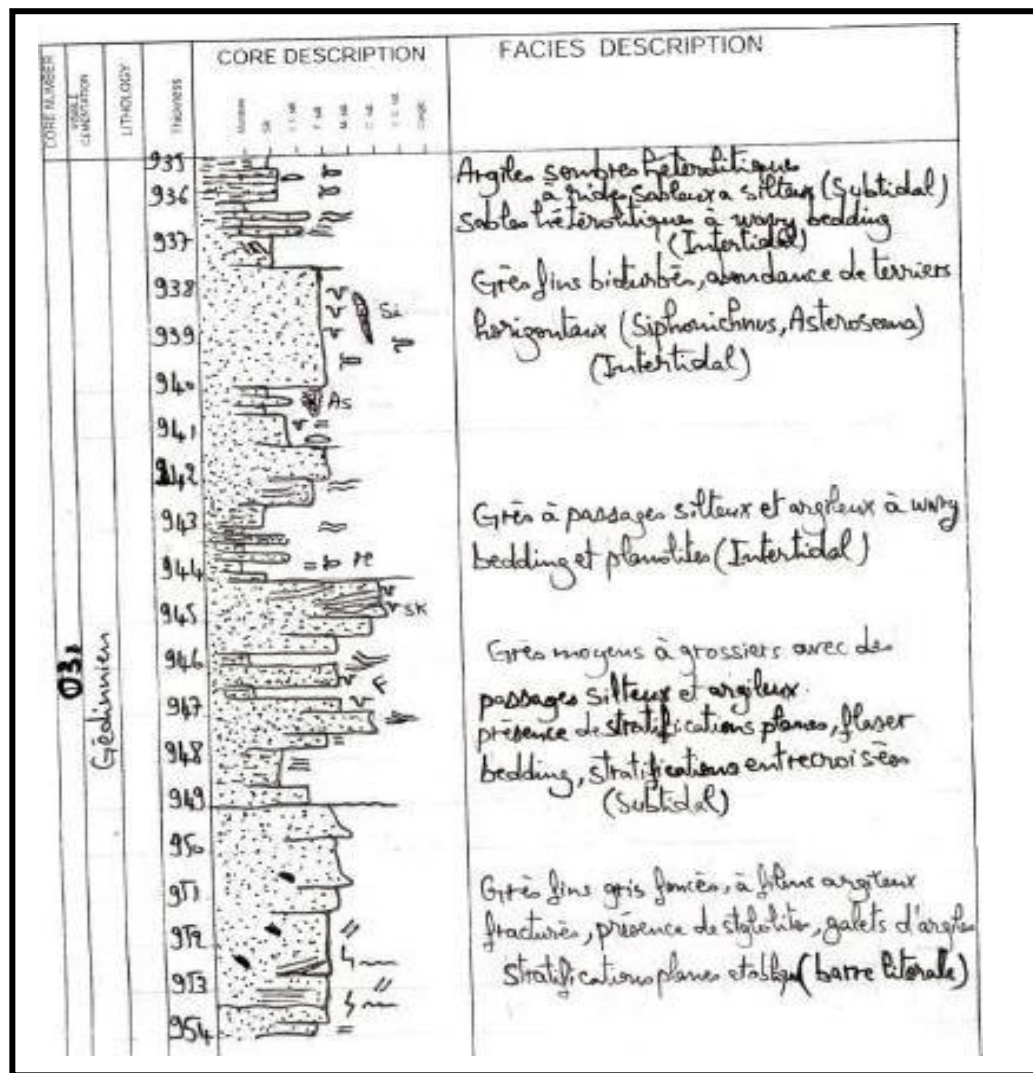 CORE NUMBER
VISIBLE CEMENTATION
LITHOLOGY
Thickness
CORE DESCRIPTION
Silt
FACIES DESCRIPTION
935
936
937
938
939
940
941
942
943
944
945
946
947
948
949
950
951
952
953
954
03
Gédinnien
Si
As
SK
F
Argiles sombres hétérolitiques
à rides sableux a silteux (Subtidal)
Sables hétérolitiques à wavy bedding
(Intertidal)
Grès fins bioturbés, abondance de terriers
horizontaux (Siphonichnus, Asterosoma)
(Intertidal)
Grès à passages silteux et argileux à wavy
bedding et planolites (Intertidal)
Grès moyens à grossiers avec des
passages silteux et argileux.
présence de stratifications planes, flaser
bedding, stratifications entrecroisées
(Subtidal)
Grès fins gris foncés, à films argileux
fracturés, présence de stylolites, galets d'argiles
Stratifications planes et obliques (barre litorale)